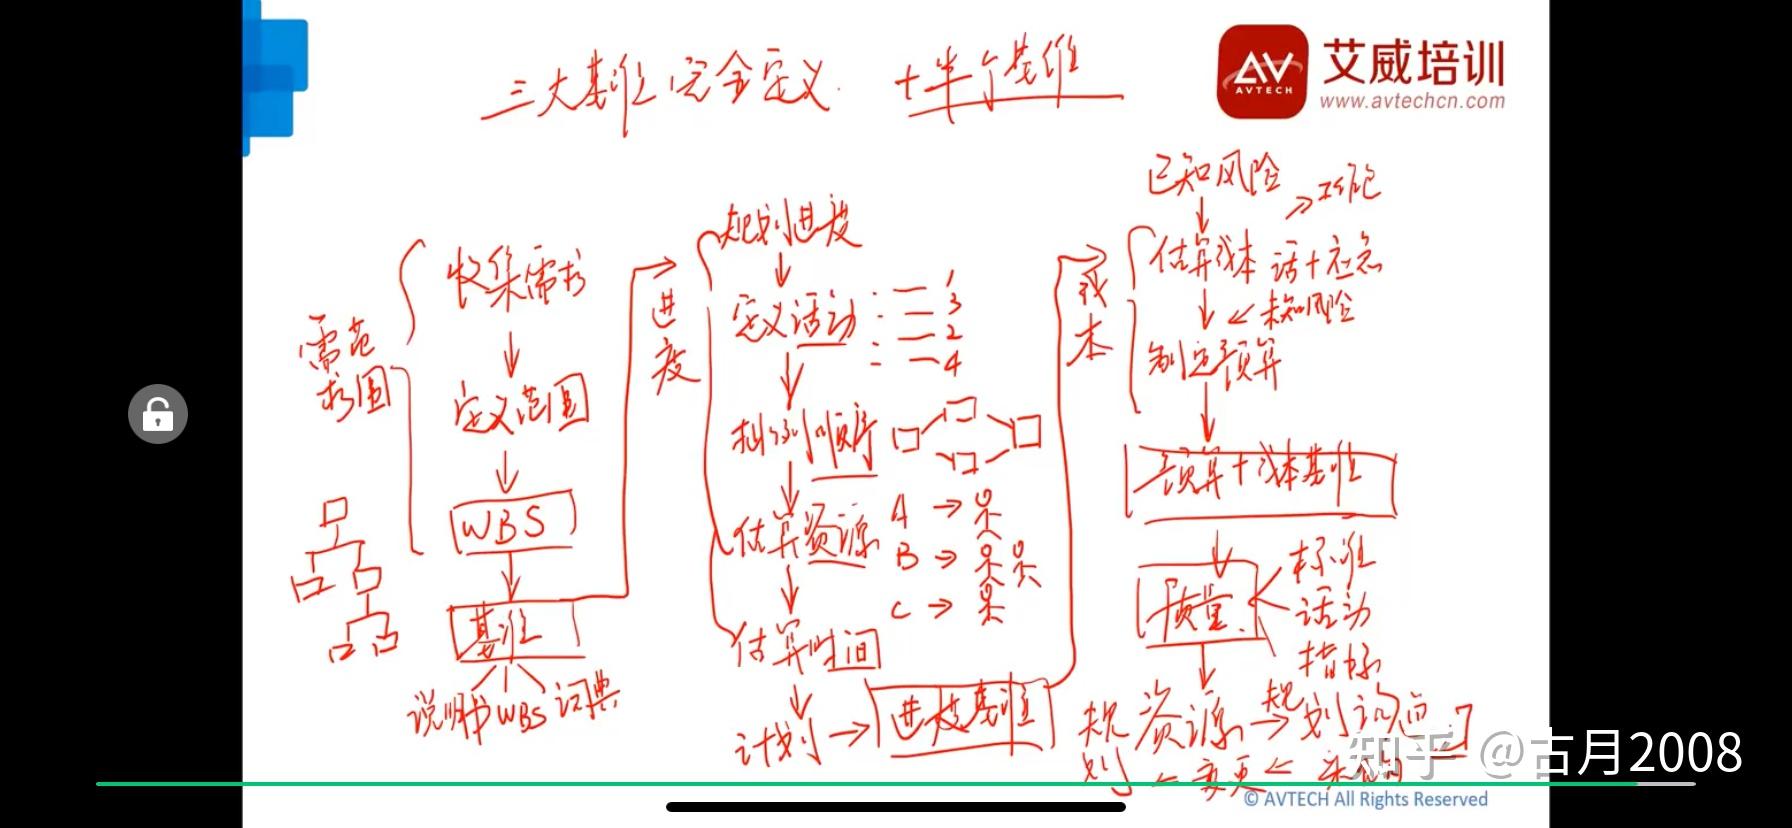 三大基准 完全定义. +半个基准
AV
AVTECH
艾威培训
www.avtechcn.com
需求
范围
收集需求
定义范围
WBS
基准
说明书 WBS 词典
进度
规划进度
定义活动
1
3
2
4
排列顺序
估算资源
A →
B →
C →
估算时间
计划 → 进度基准
成本
已知风险
工作包
估算成本 活+应急
未知风险
制定预算
预算+成本基准
质量
标准
活动
指标
规划
资源 → 规划沟通
变更 ←
知乎 @古月2008
© AVTECH All Rights Reserved